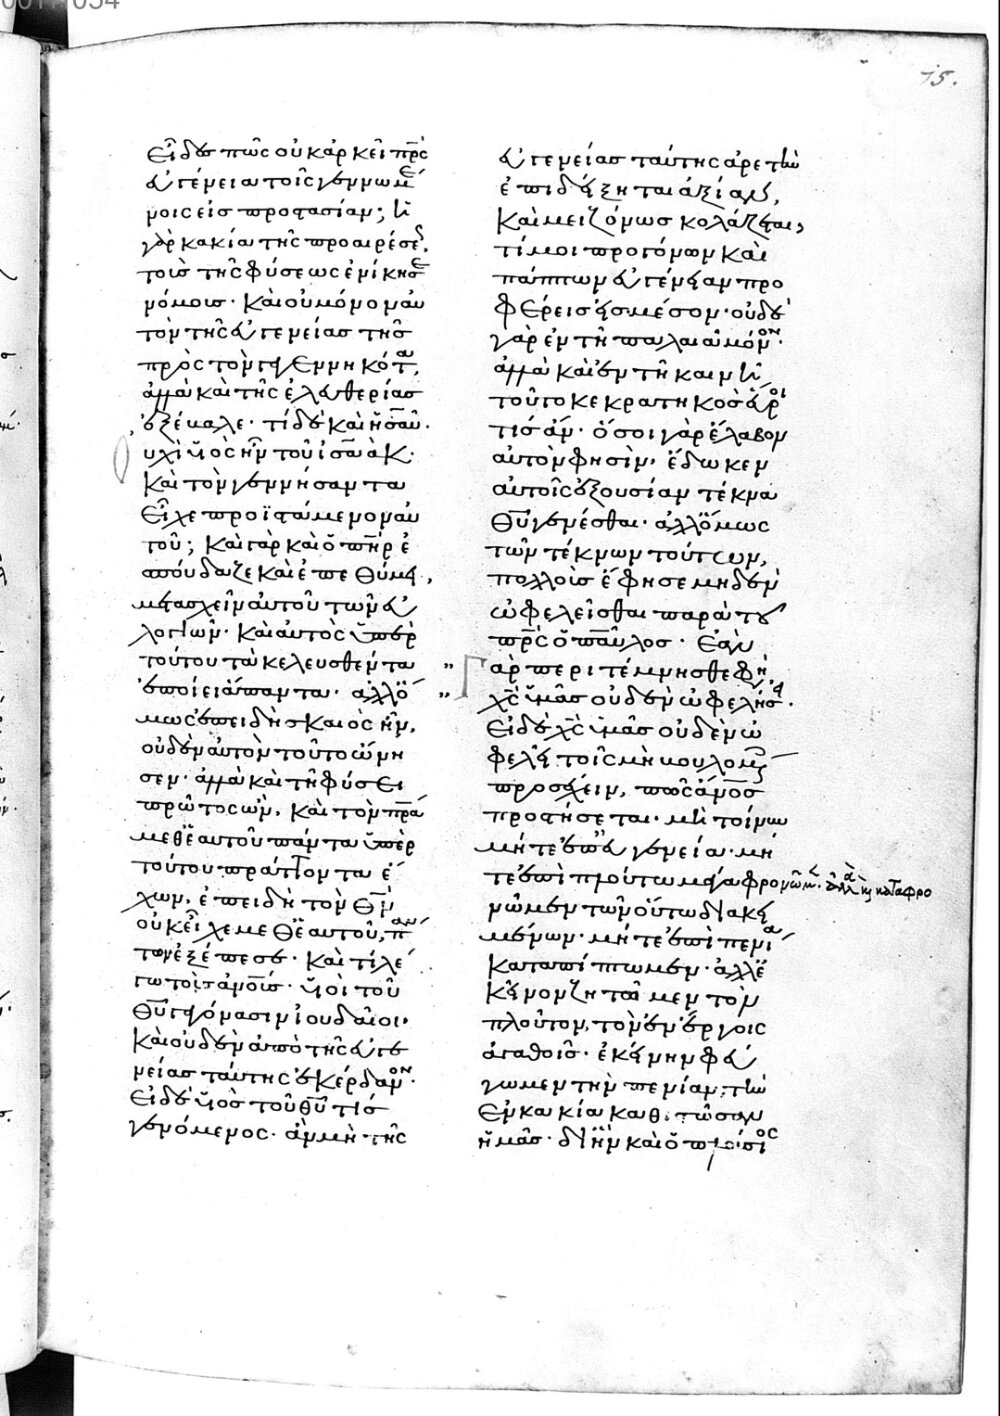 75.
Εἶδες πῶς οὐκ ἀρκεῖ πρὸς
εὐγένειαν τοῖς γεννωμέ
νοις εἰς προστασίαν; ἡ
γὰρ κακία τῆς προαιρέσεως,
τοὺς τῆς φύσεως ἐνίκησε
νόμους· καὶ οὐ μόνον αὐ
τὸν τῆς εὐγενείας τῆς
πρὸς τὸν γεγεννηκότα,
ἀλλὰ καὶ τῆς ἐλευθερίας
ἐξέβαλε· τί δὲ καὶ ἡσαῦ·
οὐχὶ υἱὸς ἦν τοῦ ἰσαάκ·
καὶ τὸν γεννήσαντα
εἶχε προϊστάμενον αὐ
τοῦ; καὶ γὰρ καὶ ὁ πὴρ ἐ
σπούδαζε καὶ ἐπεθύμει,
μετασχεῖν αὐτοῦ τῶν εὐ
λογιῶν· καὶ αὐτὸς ὑπὲρ
τούτου τὰ κελευσθέντα
ἐποίει ἅπαντα· ἀλλ' ὅ
μως ἐπειδὴ σκαιὸς ἦν,
οὐδὲν αὐτὸν τοῦτο ὤνη
σεν· ἀλλὰ καὶ τῇ φύσει
πρῶτος ὢν, καὶ τὸν πρα
μεθ' ἑαυτοῦ πάντα ὑπὲρ
τούτου πράττοντα ἔ
χων, ἐπειδὴ τὸν θν
οὐκ εἶχε μεθ' ἑαυτοῦ, πάν
των ἐξέπεσε· καὶ τί λέ
γω τοῖς ἀνοις· υἱοὶ τοῦ
θυ γεγόνασιν ἰουδαῖοι·
καὶ οὐδὲν ἀπὸ τῆς εὐγε
νείας ταύτης ἐκέρδανον·
εἰ δὲ υἱὸς τοῦ θυ τίς
γενόμενος· ἂν μὴ τῆς
εὐγενείας ταύτης ἀρετὴν
ἐπιδείξηται ἀξίαν,
καὶ μειζόνως κολάζεται,
τί μοι προγόνων καὶ
πάππων εὐγένειαν προ
φέρεις εἰς μέσον· οὐδὲ
γὰρ ἐν τῇ παλαιᾷ μόνον·
ἀλλὰ καὶ ἐν τῇ καινῇ
τοῦτο κεκρατηκὸς εὕροι
τις ἄν· ὅσοι γὰρ ἔλαβον
αὐτὸν φησὶν, ἔδωκεν
αὐτοῖς ἐξουσίαν τέκνα
θυ γενέσθαι· ἀλλ' ὅμως
τῶν τέκνων τούτων,
πολλοὺς ἔφησε μηδὲν
ὠφελεῖσθαι παρὰ τοῦ
πρς ὁ παῦλος· ἐὰν
γὰρ περιτέμνησθε φη,
χς ὑμᾶς οὐδὲν ὠφελήσει·
εἰ δὲ χς ὑμᾶς οὐδὲν ὠ
φελεῖ, τοῖς μὴ βουλομένοις
προσέχειν, πῶς ἄνος
προστήσεται· μὴ τοίνυν
μήτε ἐπ' εὐγενείᾳ· μή
τε ἐπὶ πλούτῳ μέγα φρονῶμεν· ἀλλὰ καὶ καταφρο
νῶμεν τῶν οὕτω διακει
μένων· μήτε ἐπὶ πενίᾳ
καταπίπτωμεν· ἀλλ' ἐ
κεῖνον ζητῶμεν τὸν
πλοῦτον, τὸν ἐν ἔργοις
ἀγαθοῖς· ἐκείνην φεύ
γωμεν τὴν πενίαν, τὴν
ἐν κακίᾳ καθιστῶσαν
ἡμᾶς· δι' ἣν καὶ ὁ πλούσιος